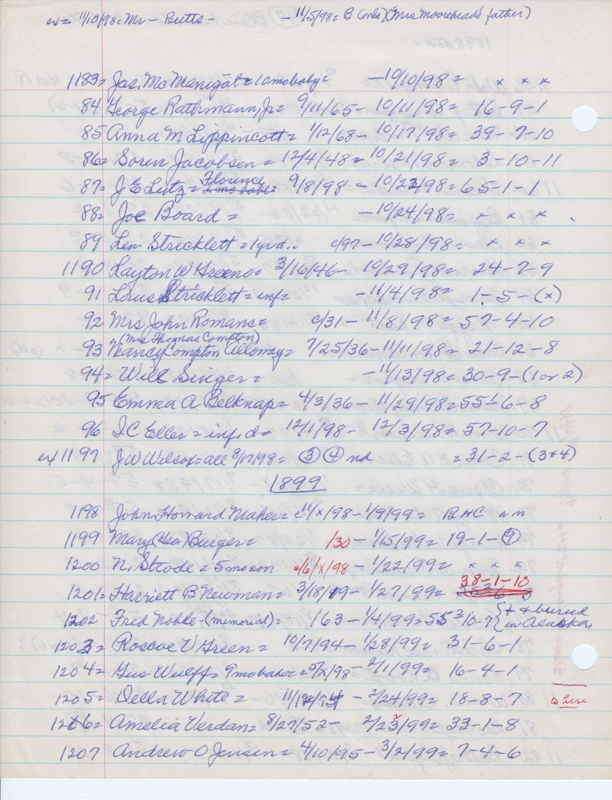 ex= 11/10/98= Mr - Butts - - 11/5/98= B (only) (Mrs Moorehead's father)
1183= Jas. McManigal= 10mobaby= -10/10/98= x x x
84 George Rathmann, Jr= 9/11/65- 10/11/98= 16-9-1
85 Anna M Lippincott= 1/12/68- 10/17/98= 39-7-10
86= Soren Jacobsen= 12/4/48= 10/21/98= 3-10-11
87= J E Lutz= Florence 9/8/98 - 10/22/98= 65-1-1
88= Joe Board= -10/24/98= x x x
89 Len Stricklett= 1yrd.= c/97- 10/28/98= x x x
1190 Layton W Greeno= 3/16/46- 10/29/98= 24-7-9
91 Louis Stricklett= inf= -11/4/98= 1-5-(x)
92 Mrs John Romans= c/31- 11/8/98= 57-4-10
(Mrs Thomas Compton)
93 Nancy Compton Alloway= 7/25/36- 11/11/98= 21-12-8
94= Will Singer= -11/13/98= 30-9-(1 or 2)
95 Emma A Belknap= 4/3/36- 11/29/98= 55-6-8
96 I C Eller= inf.d= 12/1/98- 12/3/98= 57-10-7
ex 1197 J W Wilson= all 3/17/98= (3) (4) nd = 31-2-(3+4)
1899
1198 John Howard Maher= c11/x/98- 1/9/99= B&C
1199 Mary Burger= /30- 1/15/99= 19-1-(9)
1200 N. Strode= 5moson c/6/x/98 - 1/22/99= x x x
1201= Harriett B Newman= 3/18/19- 1/27/99= 38-1-10
1202 Fred Noble-(memorial)= /63- 1/4/99= 55 10-7 {d + buried in Alaska}
1203= Roscoe V Green= 10/7/94- 1/28/99= 31-6-1
1204= Gus Wulff= 9mobaby= 5/2/98- 2/1/99= 16-4-1
1205= Della White= - 2/24/99= 18-8-7 to here
1206= Amelia Verdan= 8/27/52- 2/23/99= 33-1-8
1207 Andrew O Jensen= 4/10/95- 3/2/99= 7-4-6